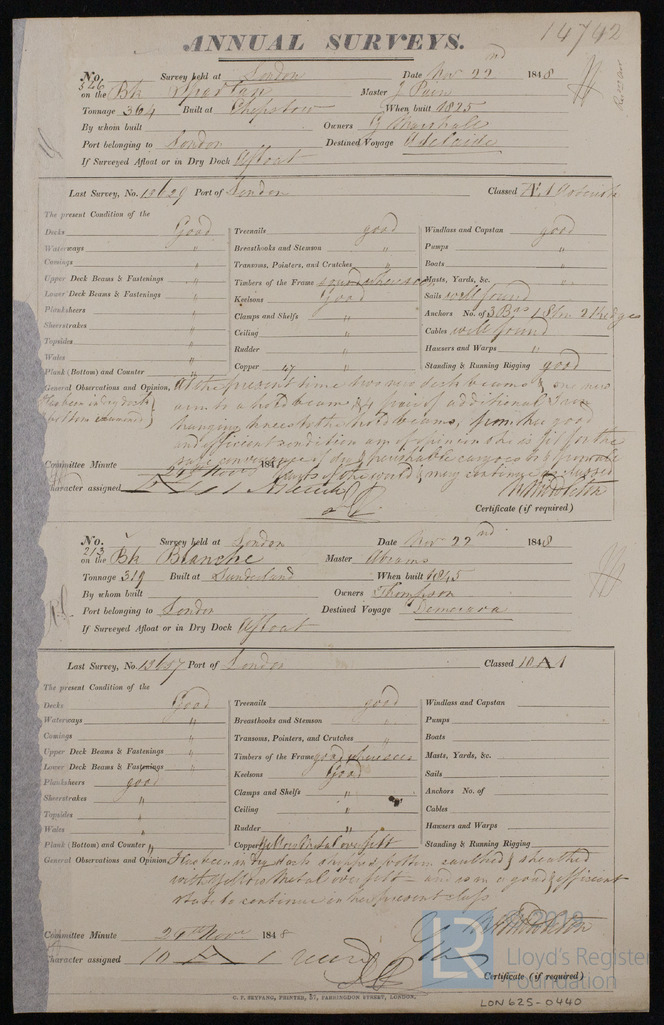 14742
ANNUAL SURVEYS.
No. 546 Survey held at London Date Nov 22nd 1848
on the Bk Spartan Master J
Tonnage 364 Built at Chepstow When built 1825
By whom built Owners G Marshall
Port belonging to London Destined Voyage Adelaide
If Surveyed Afloat or in Dry Dock Afloat
Last Survey, No. 13629 Port of London Classed Æ 1
The present Condition of the
Decks Good Treenails good Windlass and Capstan good
Waterways " Breasthooks and Stemson " Pumps "
Comings " Transoms, Pointers, and Crutches " Boats "
Upper Deck Beams & Fastenings " Timbers of the Frame Masts, Yards, &c. "
Lower Deck Beams & Fastenings " Keelsons Good Sails well found
Planksheers " Clamps and Shelfs " Anchors No. of 3 Brs 1 Stm 2 Kedges
Sheerstrakes " Ceiling " Cables well found
Topsides " Rudder " Hawsers and Warps "
Wales " Copper 47 Standing & Running Rigging good
Plank (Bottom) and Counter "
General Observations and Opinion, At the present time two new deck beams & one new
Has been in dry dock & bottom examined
arm to a hold beam & 4 pair of additional Iron
hanging knees to the hold beams, from her good
and efficient condition am of opinion she is fit for the
safe conveyance of dry & perishable cargoes to & from all
parts of the world & may continue as classed
Committee Minute 24th Novr 1848
Character assigned
Certificate (if required)
No. 213 Survey held at London Date Nov 22nd 1848
on the Bk Blanche Master Abrams
Tonnage 319 Built at Sunderland When built 1845
By whom built Owners Thompson
Port belonging to London Destined Voyage Demerara
If Surveyed Afloat or in Dry Dock Afloat
Last Survey, No. 13697 Port of London Classed 10 A 1
The present Condition of the
Decks Good Treenails good Windlass and Capstan
Waterways " Breasthooks and Stemson " Pumps
Comings " Transoms, Pointers, and Crutches " Boats
Upper Deck Beams & Fastenings " Timbers of the Frame good Masts, Yards, &c.
Lower Deck Beams & Fastenings " Keelsons Good Sails
Planksheers good Clamps and Shelfs " Anchors No. of
Sheerstrakes " Ceiling " Cables
Topsides " Rudder " Hawsers and Warps
Wales " Copper Yellow Metal over felt Standing & Running Rigging
Plank (Bottom) and Counter "
General Observations and Opinion, Has been in dry dock stripped, bottom caulked & sheathed
with Yellow Metal over felt and is in a good & efficient
state to continue in her present class
Committee Minute 24th Novr 1848
Character assigned 10 A 1
Certificate (if required)
C. F. SEYFANG, PRINTER, 57, FARRINGDON STREET, LONDON.
LR
© 2019
Lloyd's Register
Foundation
LON625-0440